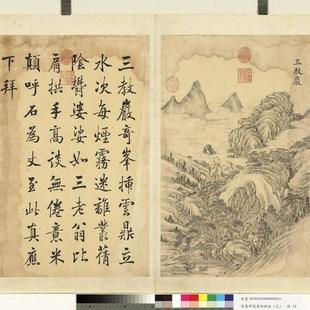 三教巖
三教巖奇峯插雲鼎立
水次每煙霧迷離叢蒨
陰鬱婆娑如三老翁比
肩拱手高談無倦意米
顛呼石為丈至此真應
下拜